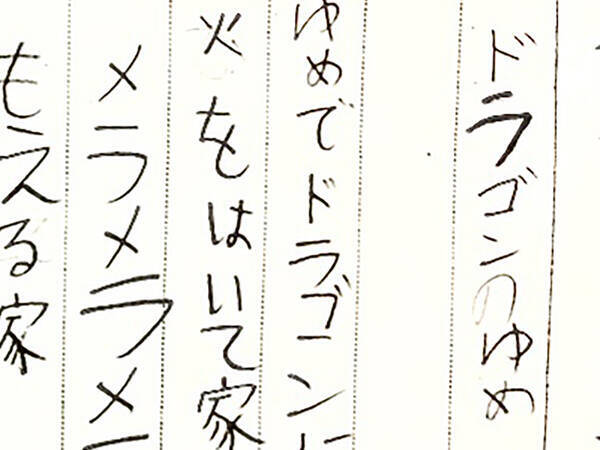 ドラゴンのゆめ
ゆめでドラゴンに
火をはいて家
メラメラメラ
もえる家